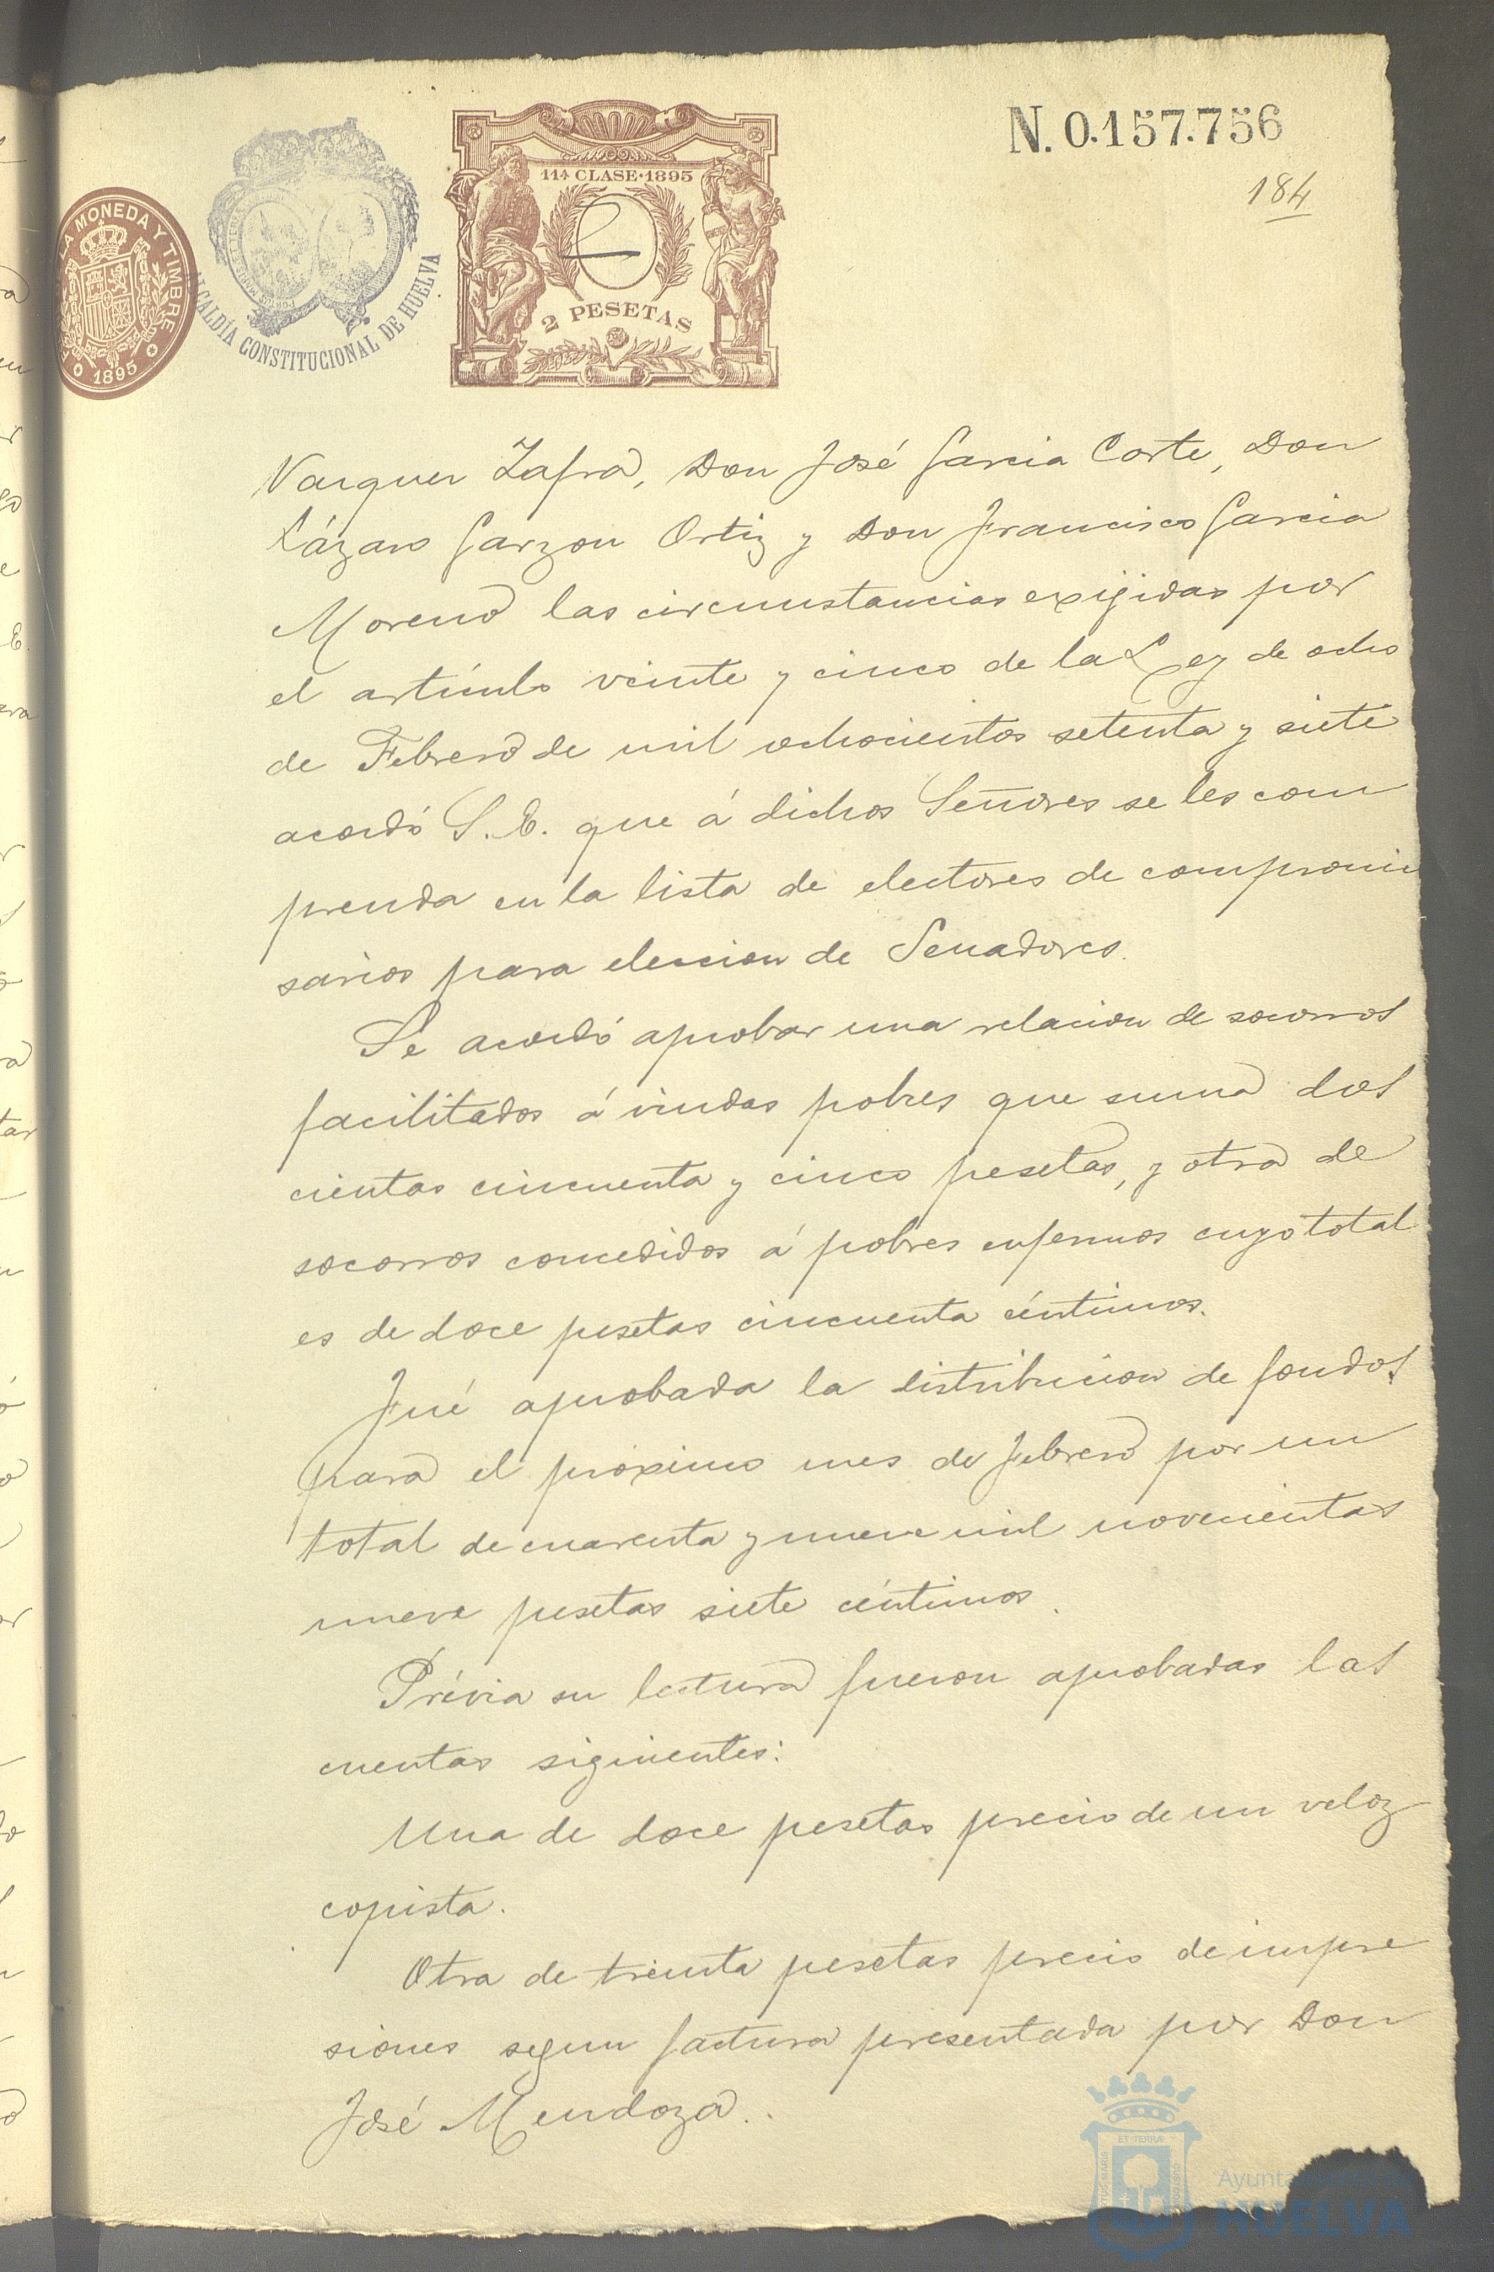 N. 0.157.756
184
11ª CLASE·1895
2 PESETAS
MONEDA Y TIMBRE
1895
ALCALDÍA CONSTITUCIONAL DE HUELVA
Vazquez Zafra, Don José Garcia Corte, Don
Lázaro Garzon Ortiz y Don Francisco Garcia
Moreno las circunstancias exijidas por
el artículo veinte y cinco de la Ley de ocho
de Febrero de mil ochocientos setenta y siete
acordó S. E. que á dichos Señores se les com
prenda en la lista de electores de compromi
sarios para eleccion de Senadores.
Se acordó aprobar una relacion de socorros
facilitados á viudas pobres que suma dos
cientas cincuenta y cinco pesetas, y otra de
socorros concedidos á pobres enfermos cuyo total
es de doce pesetas cincuenta céntimos.
Fué aprobada la distribucion de fondos
para el próximo mes de Febrero por un
total de cuarenta y nueve mil novecientas
nueve pesetas siete céntimos.
Prévia su lectura fueron aprobadas las
cuentas siguientes:
Una de doce pesetas precio de un veloz
copista.
Otra de treinta pesetas precio de impre
siones segun factura presentada por Don
José Mendoza.
HUELVA